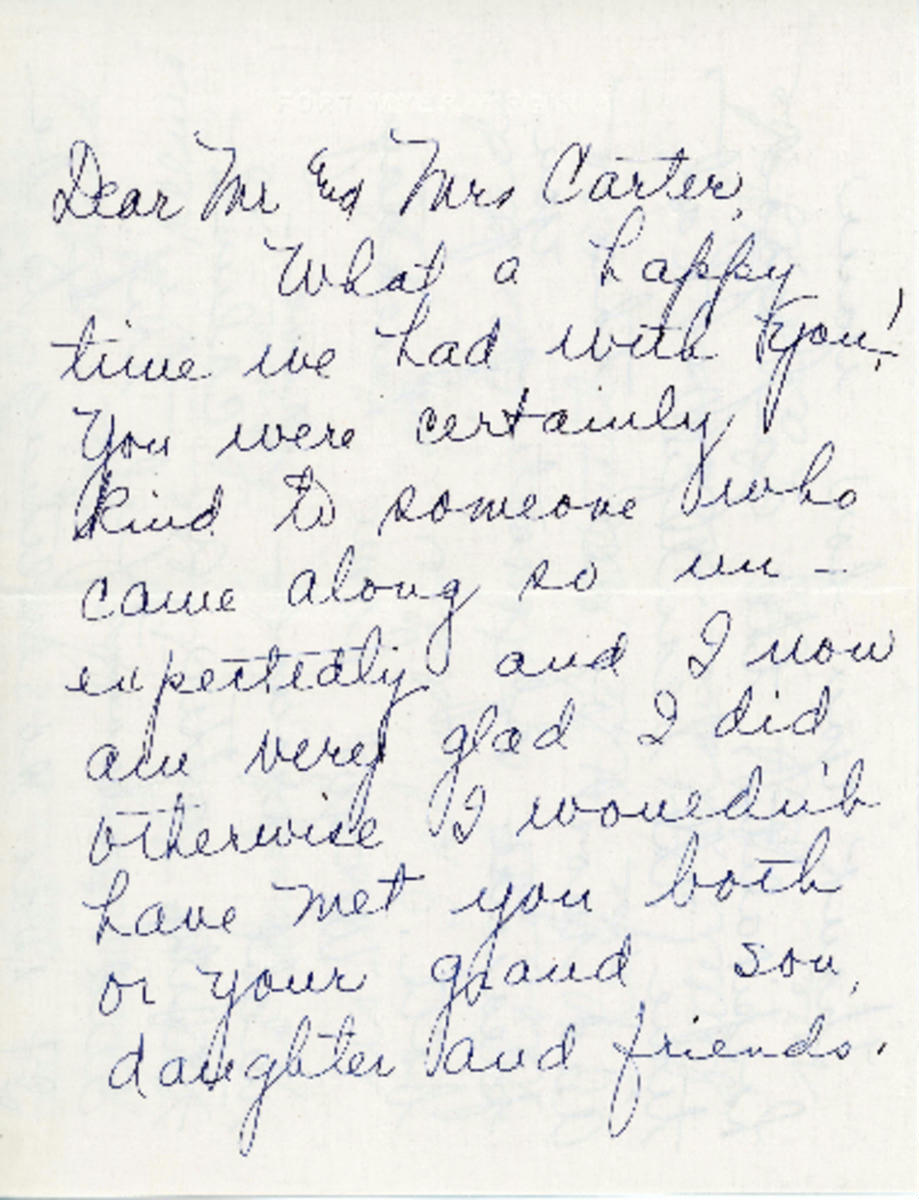 FORT MYER, VIRGINIA
Dear Mr and Mrs Carter,
What a happy
time we had with you!
You were certainly
kind to someone who
came along so un-
expectedly and I now
am very glad I did
otherwise I wouldn't
have met you both
or your grand son,
daughter and friends.